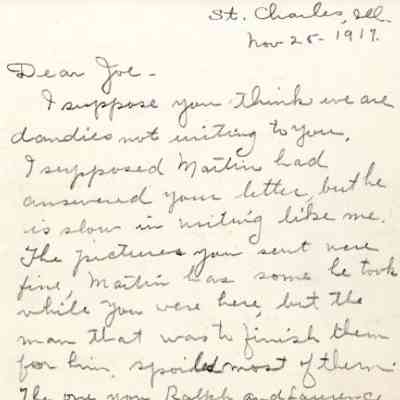 St. Charles, Ill.
Nov 25- 1917.
Dear Joe -
I suppose you think we are
dandies not writing to you,
I supposed Martin had
answered your letter, but he
is slow in writing like me.
The pictures you sent were
fine, Martin has some he took
while you were here, but the
man that was to finish them
for him, spoiled most of them.
The one you Ralph and Laurence